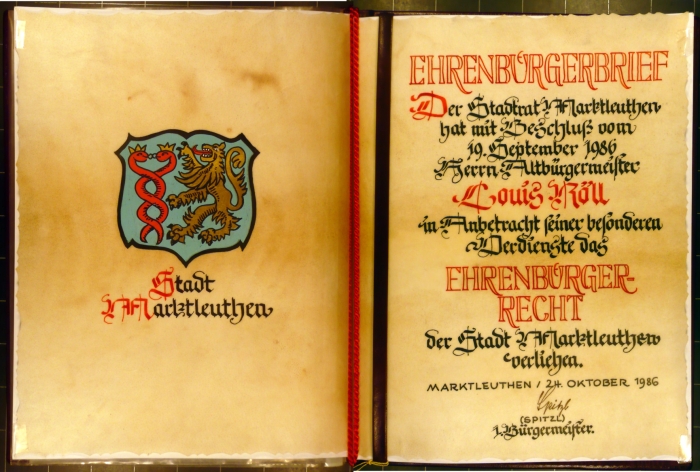 Stadt
Marktleuthen
EHRENBÜRGERBRIEF
Der Stadtrat Marktleuthen
hat mit Beschluß vom
19. September 1986
Herrn Altbürgermeister
Louis Röll
in Anbetracht seiner besonderen
Verdienste das
EHRENBÜRGER-
RECHT
der Stadt Marktleuthen
verliehen.
MARKTLEUTHEN / 24. OKTOBER 1986
Spitzl
(SPITZL)
1. Bürgermeister.